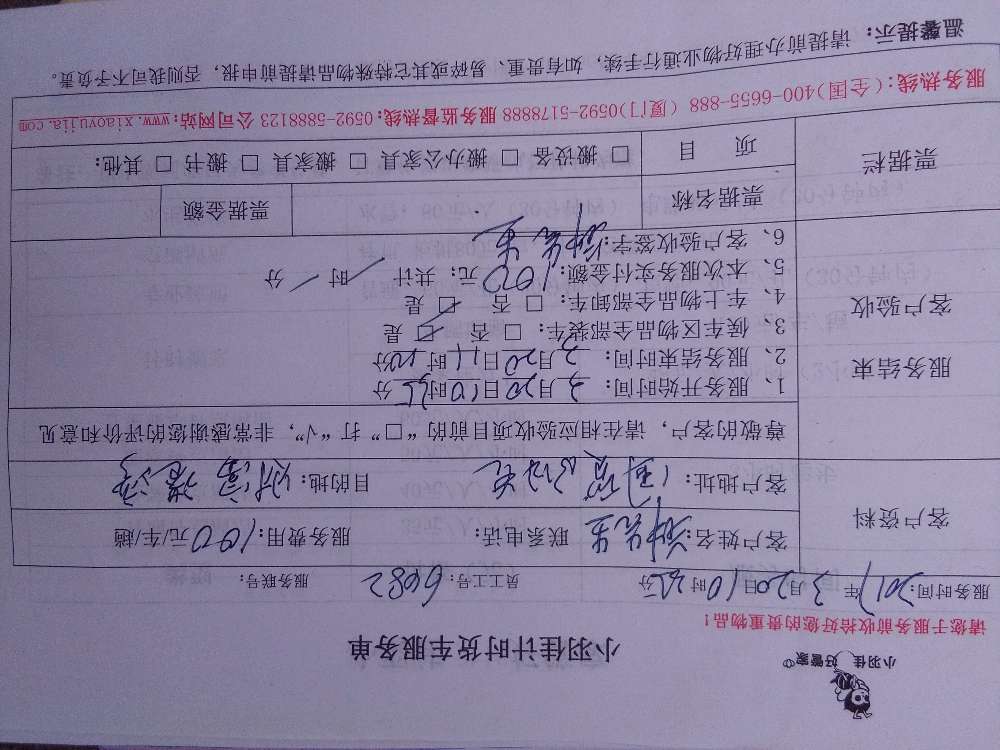 小羽佳 好管家
小羽佳计时货车服务单
请您于服务前收拾好您的贵重物品！
服务时间：2017年 3月20日10时25分 员工工号：6682 服务联号：
客户资料
客户姓名：钟先生 联系电话： 服务费用：100元/车/趟
客户地址： 目的地：
尊敬的客户，请在相应验收项目前的“□”打“√”，非常感谢您的评价和意见
服务结束
客户验收
1、服务开始时间：3月20日10时25分
2、服务结束时间：3月20日11时20分
3、候车区物品全部装车：□ 否 □ 是
4、车上物品全部卸车：□ 否 □ 是
5、本次服务实付金额：100元；共计 / 时 / 分
6、客户验收签字：钟先生
票据栏
票据名称 票据金额
项 目 □ 搬设备 □ 搬办公家具 □ 搬家具 □ 搬书 □ 其他：
服务热线：(全国)400-6655-888 (厦门)0592-5178888 服务监督热线：0592-5888123 公司网站：www.xiaoyujia.com
温馨提示：请提前办理好物业通行手续，如有贵重、易碎或其它特殊物品请提前申报，否则我司不予负责。